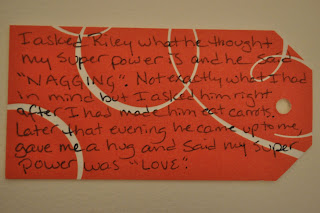 I asked Riley what he thought
my super power is and he said
"NAGGING". Not exactly what I had
in mind but I asked him right
after I had made him eat carrots.
Later that evening he came up to me,
gave me a hug and said my super
power was "LOVE".